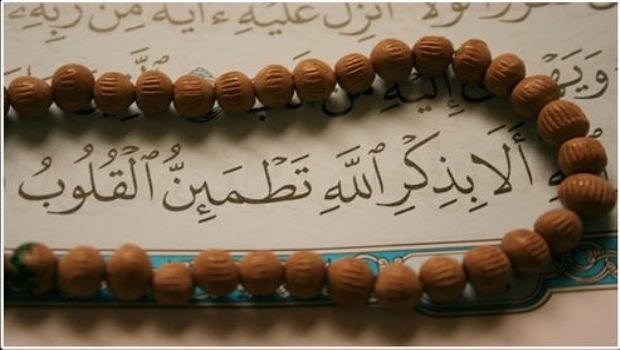 لَوْلَآ أُنزِلَ عَلَيْهِ ءَايَةٌ مِّن رَّبِّهِۦ
إِلَيْهِ مَنْ
أَلَا بِذِكْرِ ٱللَّهِ تَطْمَئِنُّ ٱلْقُلُوبُ